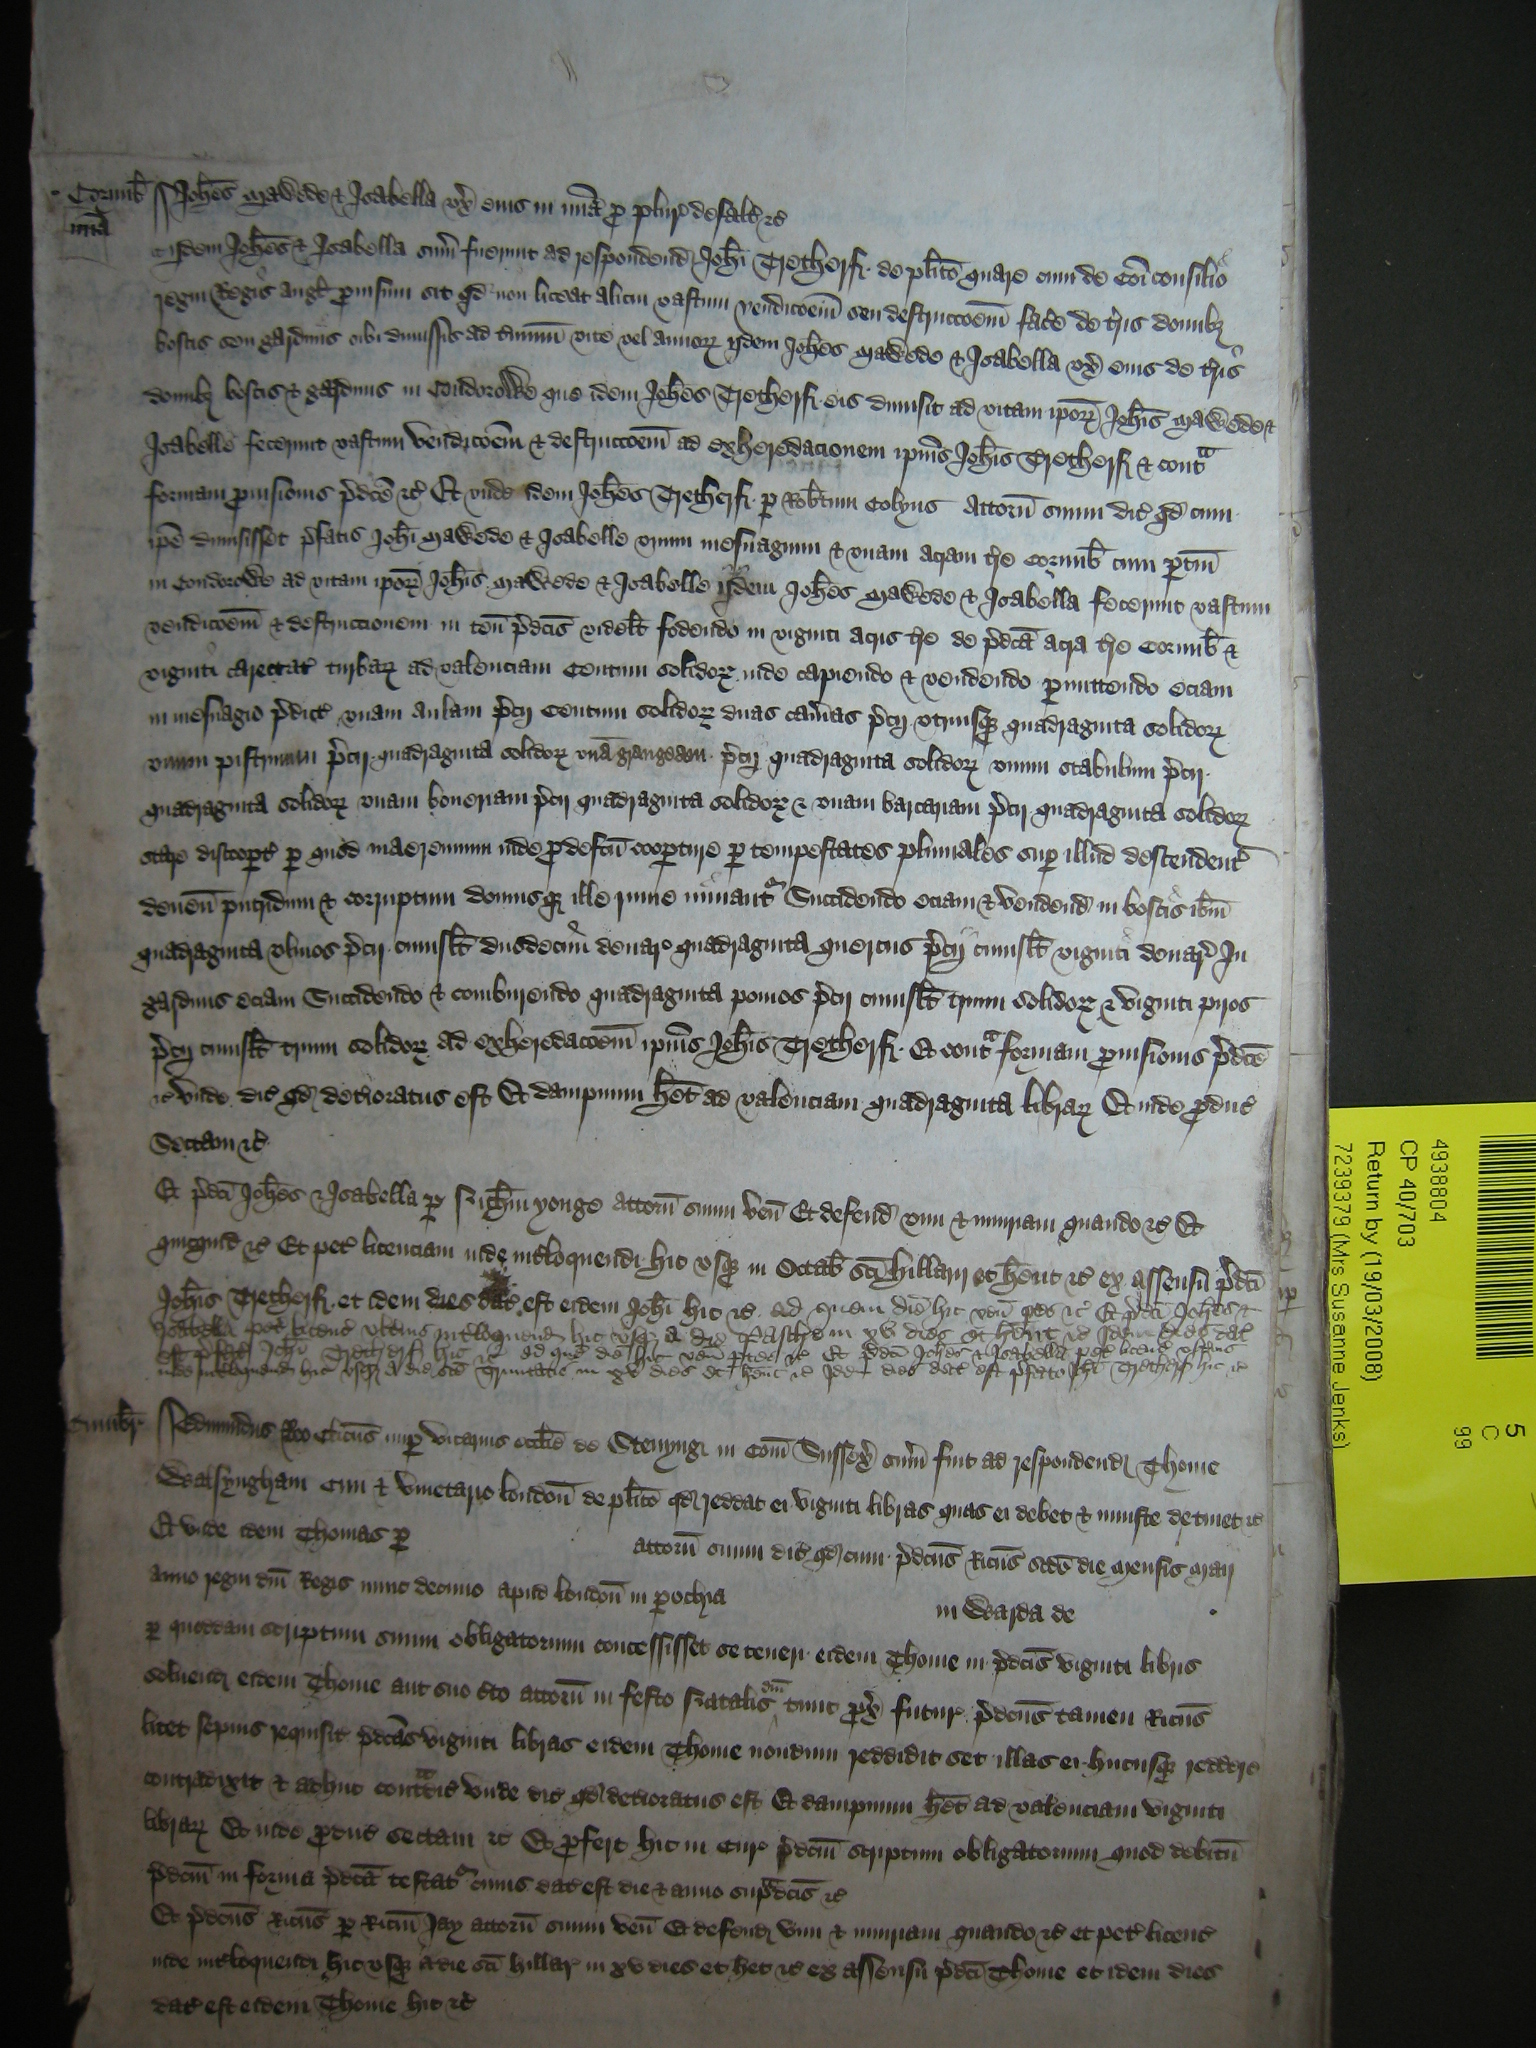 Cornub Johes Mawede & Isabella ux eius in mia p plur defalt &c
mia
Iidem Johes & Isabella sum fuerunt ad respondend Johi Tretherff de plito quare cum de coi consilio
regni Regis Angl provisum sit qd non liceat alicui vastum vendicoem seu destruccoem facere de tris domibz
boscis seu gardinis sibi dimissis ad tminu vite vel annorz iidem Johes Mawede & Isabella ux eius de tris
domibz boscis & gardinis in Condorowe que idem Johes Tretherff eis dimisit ad vitam iporz Johis Mawede &
Isabelle fecerunt vastum vendicoem & destruccoem ad exheredacionem ipius Johis Tretherff & contra
formam provisionis pdce &c Et unde idem Johes Tretherff p Robtum Colyns attorn suum dic qd cum
ipe dimisisset pfatis Johi Mawede & Isabelle unum mesuagium & unam acram tre Cornub cum ptin
in Condorowe ad vitam iporz Johis Mawede & Isabelle iidem Johes Mawede & Isabella fecerunt vastum
vendicoem & destruccionem in ten pdcis videlt fodendo in viginti acris tre de pdca acra tre Cornub &
viginti carectat turbarz ad valenciam Centum solidorz inde capiendo & vendendo pmittendo eciam
in mesuagio pdict unam aulam pcij Centum solidorz duas cameras pcij utriusqz quadraginta solidorz
unum pistrinum pcij quadraginta solidorz una grangeam pcij quadraginta solidorz unum stabulum pcij
quadraginta solidorz unam boveriam pcij quadraginta solidorz & unam barcariam pcij quadraginta solidorz
stare discoopt p quod maeremium inde p defcu cooperture p tempestates pluviales sup illud descendent
deven putridum & corruptum domusqz ille ruine minantr Succidendo eciam & vendend in boscis ibm
quadraginta ulmos pcij cuiuslt duodecim denar quadraginta quercus pcij cuiuslt viginti denar In
gardinis eciam Succidendo & comburendo quadraginta pomos pcij cuiuslt trium solidorz & viginti piros
pcij cuiuslt trium solidorz ad exheredacoem ipius Johis Tretherff Et contra formam provisionis pdce
&c unde dic qd deterioratus est Et dampnum het ad valenciam quadraginta librarz Et inde produc
Sectam &c
Et pdci Johes & Isabella p Nichm Yonge attorn suum ven Et defend vim & iniuriam quando &c Et
quicquid &c Et pet licenciam inde intloquendi hic usqz in Octab sci Hillarij et hent &c ex assensu pdci
Johis Tretherff et idem dies dat est eidem Johi hic &c ad quem diem hic ven ptes &c Et pdci Johes &
Isabella pet licenc ulterius intloquend hic usqz a die Pasche in xv dies et hent &c Idem dies dat
est pfato Johi Tretherff hic &c ad quem diem hic ven ptes &c Et pdci Johes & Isabella pet licenc ulterius
inde intloquend hic usqz a die sce Trinitatis in xv dies et hent &c Idem dies dat est pfato Johi Tretherff hic &c
Edmundus Clicus nup vicarius ecclie de Stenyng in Com Sussex sum fuit ad respondend Thome
Walsyngham Civi & vinetario london de plito qd reddat ei viginti libras quas ei debet & iniuste detinet &c
Et unde idem Thomas p attorn suum dic qd cum pdcus Ricus scdo die mensis Maij
anno regni dni Regis nunc decimo apud london in pochia in Warda de
p quoddam scriptum suum obligatorium concessisset se teneri eidem Thome in pdcis viginti libris
solvend eidem Thome aut suo cto attorn in festo Natalis dni tunc prox futur pdcus tamen Ricus
licet sepius requisit pdcas viginti libras eidem Thome nondum reddidit set illas ei hucusqz reddere
contradixit & adhuc contradic unde dic qd deterioratus est Et dampnum het ad valenciam viginti
librarz Et inde produc sectam &c Et profert hic in Cur pdcm scriptum obligatorium quod debitum
pdcm in forma pdca testatr cuius dat est die & anno supdcis &c
Et pdcus Ricus p Ricm Jay attorn suum ven Et defend vim & iniuriam quando &c et pet licenc
inde intloquendi hic usqz a die sci Hillar in xv dies et het &c ex assensu pdci Thome et idem dies
dat est eidem Thome hic &c
4938804
CP 40/703
Return by (19/03/2008)
7239379 (Mrs Susanne Jenks)
5
C
99